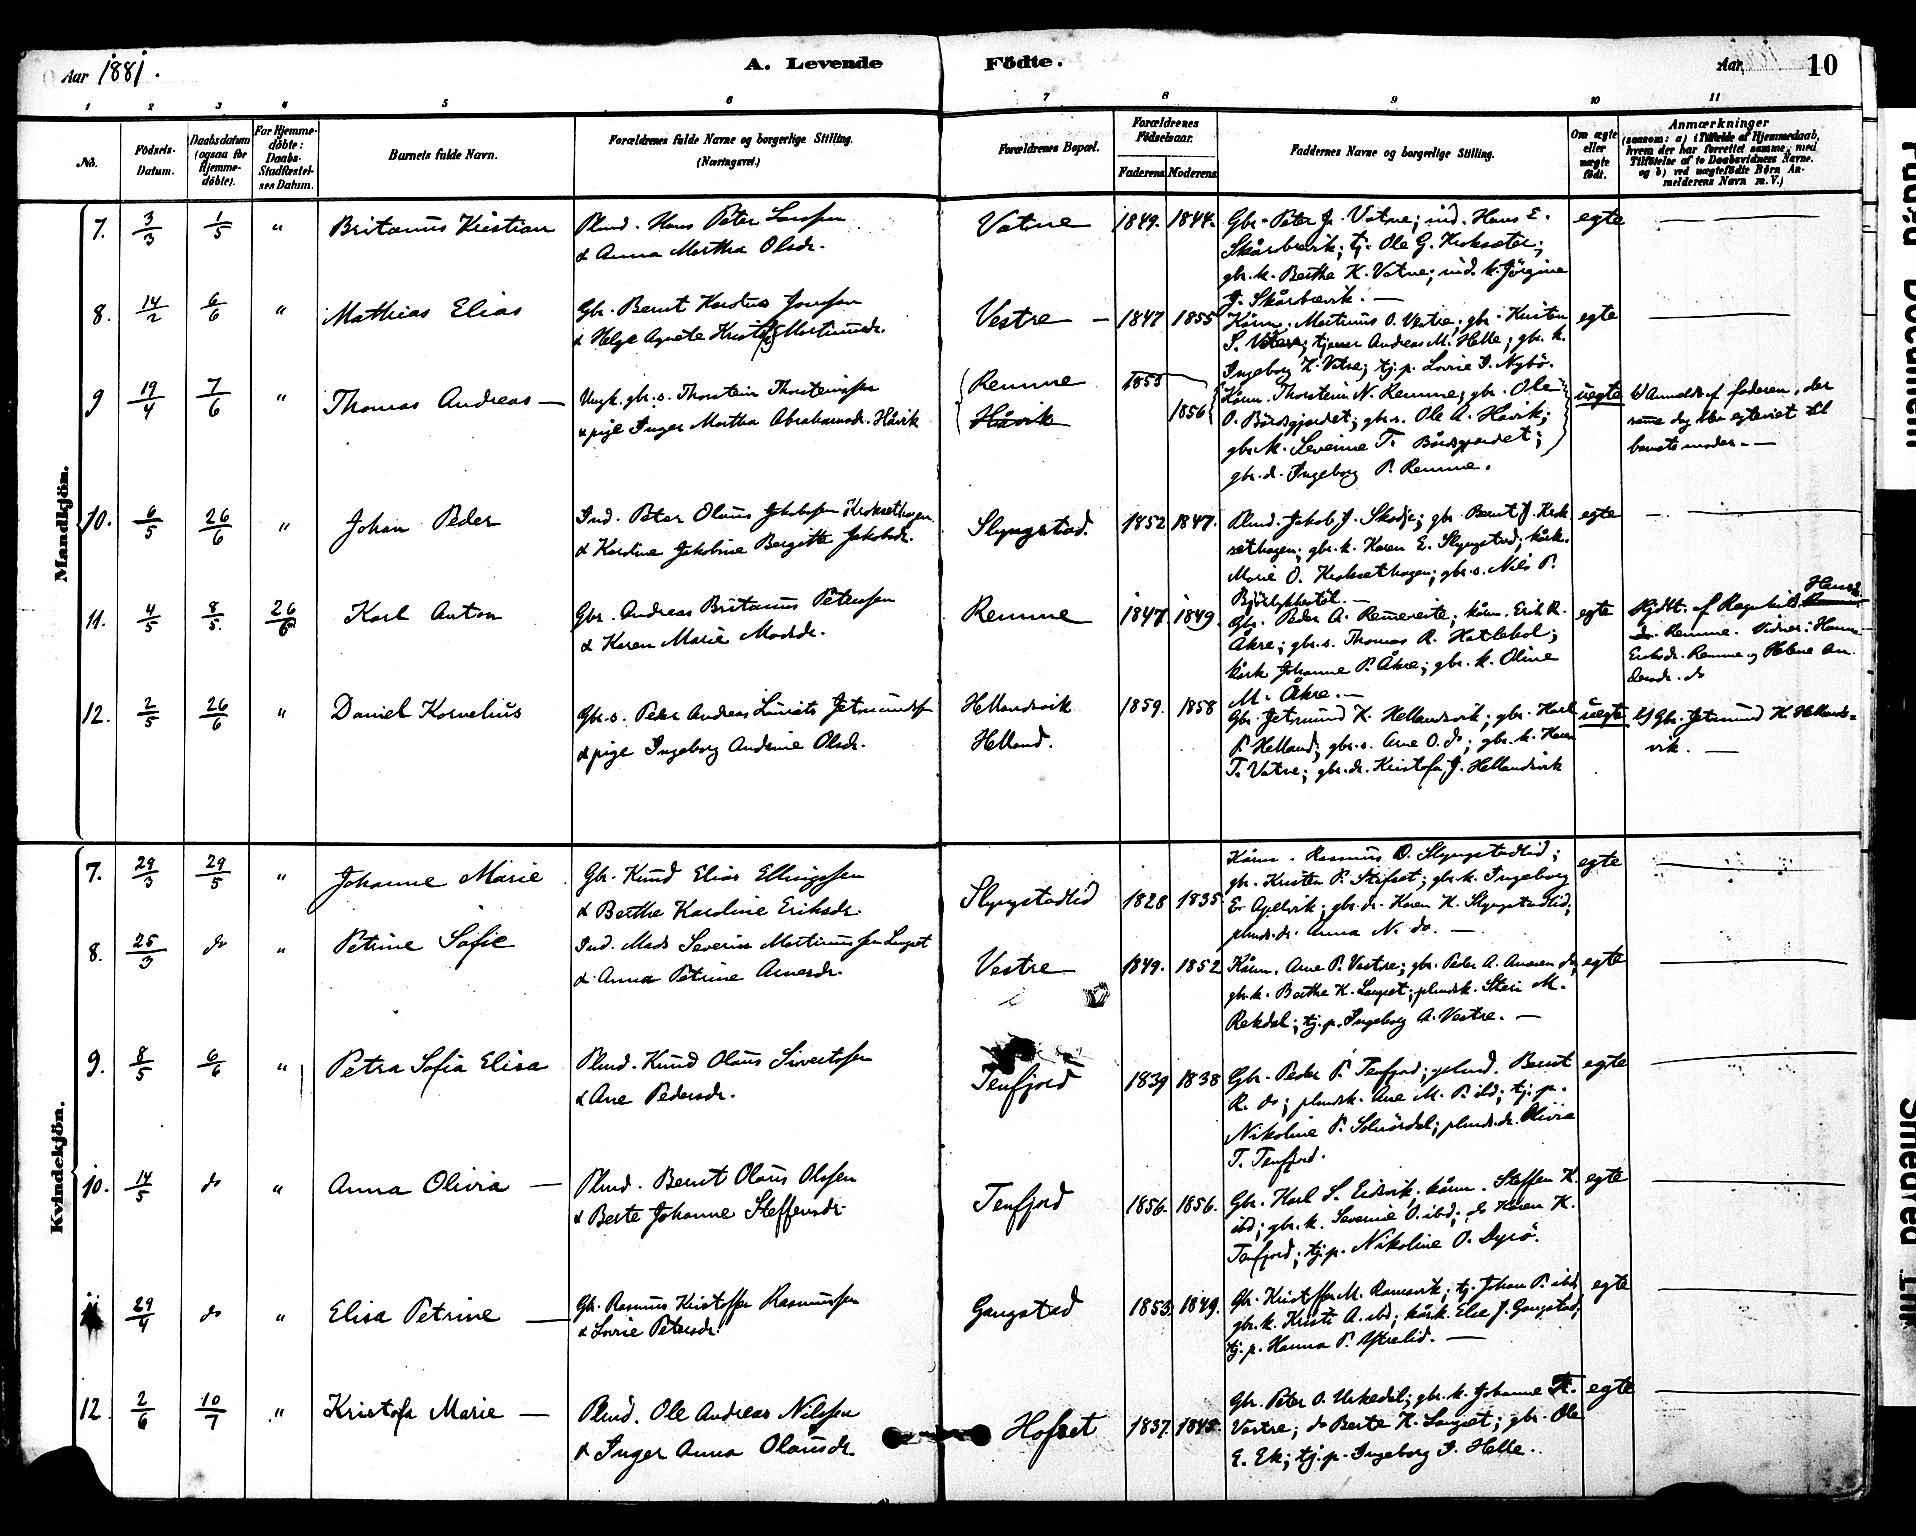 Aar 1881.
A. Levende
Födte.
Aar
10
1 2 3 4 5 6 7 8 9 10 11
No.
Födsels-
Datum.
Daabsdatum
(ogsaa for
Hjemme-
döbte).
For Hjemme-
döbte:
Daabs-
Stadfæstel-
ses Datum.
Barnets fulde Navn.
Forældrenes fulde Navne og borgerlige Stilling.
(Næringsvei.)
Forældrenes Bopæl.
Forældrenes
Födselsaar.
Faderens Moderens
Faddernes Navne og borgerlige Stilling.
Om ægte
eller
uægte
födt.
Anmærkninger
(saasom: a) i Tilfælde af Hjemmedaab,
hvem der har forrettet samme, med
Tilföielse af to Daabsvidners Navne,
og b) ved uægtefödte Börn An-
melderens Navn m. V.)
Mandkjön.
7. 3/3 1/5 " Britanus Kristian
Plmd. Hans Peter Larssen
& Anna Martha Olsdr.
Vatne 1849. 1844.
Gbr. Peter J. Vatne; ind. Hans E.
Skårbrevik; tj. Ole G. Kroksæter;
gbr.k. Berthe K. Vatne; ind.k. Jörgine
J. Skårbrevik. —
egte
8. 14/2 6/6 " Mathias Elias
Gbr. Bernt Karstus Jonssen
& Helge Agnete Martinusdr.
Vestre — 1847 1855
Kårm. Martinus O. Vestre; gbr. Kristen
S. Vatne; tjener Andreas M. Helle; gbr. k.
Ingeborg K. Vatne; tj.p. Lovise I. Nybö.
egte
9 19/4 7/6 " Thomas Andreas —
Ungk. gbr.s. Thorstein Thorsteinssen
& pige Inger Martha Abrahamsdr. Håvik
Remme
Håvik
1858
1856
Kårm. Thorstein N. Remme; gbr. Ole
O. Bårdsgjerdet; gbr.s. Ole A. Håvik;
gbr.k. Severine T. Bårdsgjerdet;
gbr.d. Ingeborg P. Remme.
uegte
b) Anmeldt af faderen, der
same dag blev egteviet til
barnets moder. —
10. 6/5 26/6 " Johan Peder
Ind. Peter Olaus Jakobssen Kroksethagen
& Karoline Jakobine Bergitte Jakobsdr.
Slyngstad. 1852 1847.
Plmd. Jakob J. Skodje; gbr. Bernt J. Krok
sethagen; gbr.k. Karen E. Slyngstad; kårk.
Marie O. Kroksethagen; gbr.s. Nils P.
egte
11. 4/5 8/5. 26/6 Karl Anton
Gbr. Andreas Britanus Petersen
& Karen Marie Madsdr.
Remme 1847 1849.
Gbr. Peder A. Remereite; kårm. Erik R.
Åkre; gbr.s. Thomas R. Hatlebol;
kårk. Johanne P. Åkre; gbr.k. Oline
M. Åkre. —
egte
Hjdt. af Ragnhild Hansdr.
Remme. Vidner: Hanne
Eriksdr. Remme og Helene An
dersdr. do
12. 2/5 26/6 " Daniel Kornelius
Gbr.s. Peter Andreas Jetmundss
& pige Ingeborg Andrine Olsdr.
Hellandsvik
Helland.
1859. 1858
Gbr. Jetmund K. Hellandsvik; gbr. Karl
P. Helland; gbr.s. Arne O. do; gbr.k. Karen
T. Vatne; gbr.dr. Kristofa J. Hellandsvik
uegte
b) Gbr. Jetmund K. Hellands-
vik. —
Kvindekjön.
7. 29/3 29/5 " Johanne Marie
Gbr. Knud Elias Ellingssen
& Berthe Karoline Eriksdr.
Slyngstadlid 1828 1835
Kårm. Rasmus O. Slyngstadlid;
gbr. Kristen P. Stifset; gbr.k. Ingeborg
E. Apelvik; gbr.dr. Karen K. Slyngstadlid;
plmds.dr. Anna N. do. —
egte
8. 25/3 do " Petrine Sofie
Ind. Mads Severin Martinussen Langset
& Anna Petrine Arnesdr.
Vestre 1849. 1852
Kårm. Arne P. Vestre; gbr. Peder A. do
gbr.k. Berthe K. Langset; plmdsk. Steri M.
Rekdal; tj.p. Ingeborg A. Vestre. —
egte
9. 8/5 6/6 " Petra Sofia Elisa
Plmd. Knud Olaus Sivertssen
& Ane Pedersdr.
Tenfjord 1839 1838
Gbr. Peder P. Tenfjord; plmd. Bernt
R. do; plmdsk. Ane M. P. ibd; tj.p.
Nikoline P. Solnördal; plmds.dr. Olivia
T. Tenfjord.
egte
10. 14/5 do " Anna Olivia —
Plmd. Bernt Olaus Olssen
& Berte Johanne Steffensdr.
Tenfjord 1856. 1856.
Gbr. Karl S. Eidsvik; kårm. Steffen K.
ibd; gbr.k. Severine O. ibd; do Karen K.
Tenfjord; tj.p. Nikoline O. Dyrö.
egte
11 29/4 do " Elisa Petrine —
Gbr. Rasmus Kristoffer Rasmussen
& Lovise Petersdr.
Gangstad 1853. 1849.
Gbr. Kristoffer M. Ramsvik; tj. Johan P. ibd
gbr.k. Kristi A. ibd; kårk. Else J. Gangstad;
tj.p. Hanna P. —
egte
12 2/6 10/7 " Kristofa Marie —
Plmd. Ole Andreas Nilssen
& Inger Anna Olausdr
Hofset 1837. 1845.
Gbr. Peter O. Urkedal; gbr.k. Johanne K.
Vestre; do Berte K. Langset; gbr. Ole
E. Ek; tj.p. Ingeborg I. Helle..
egte